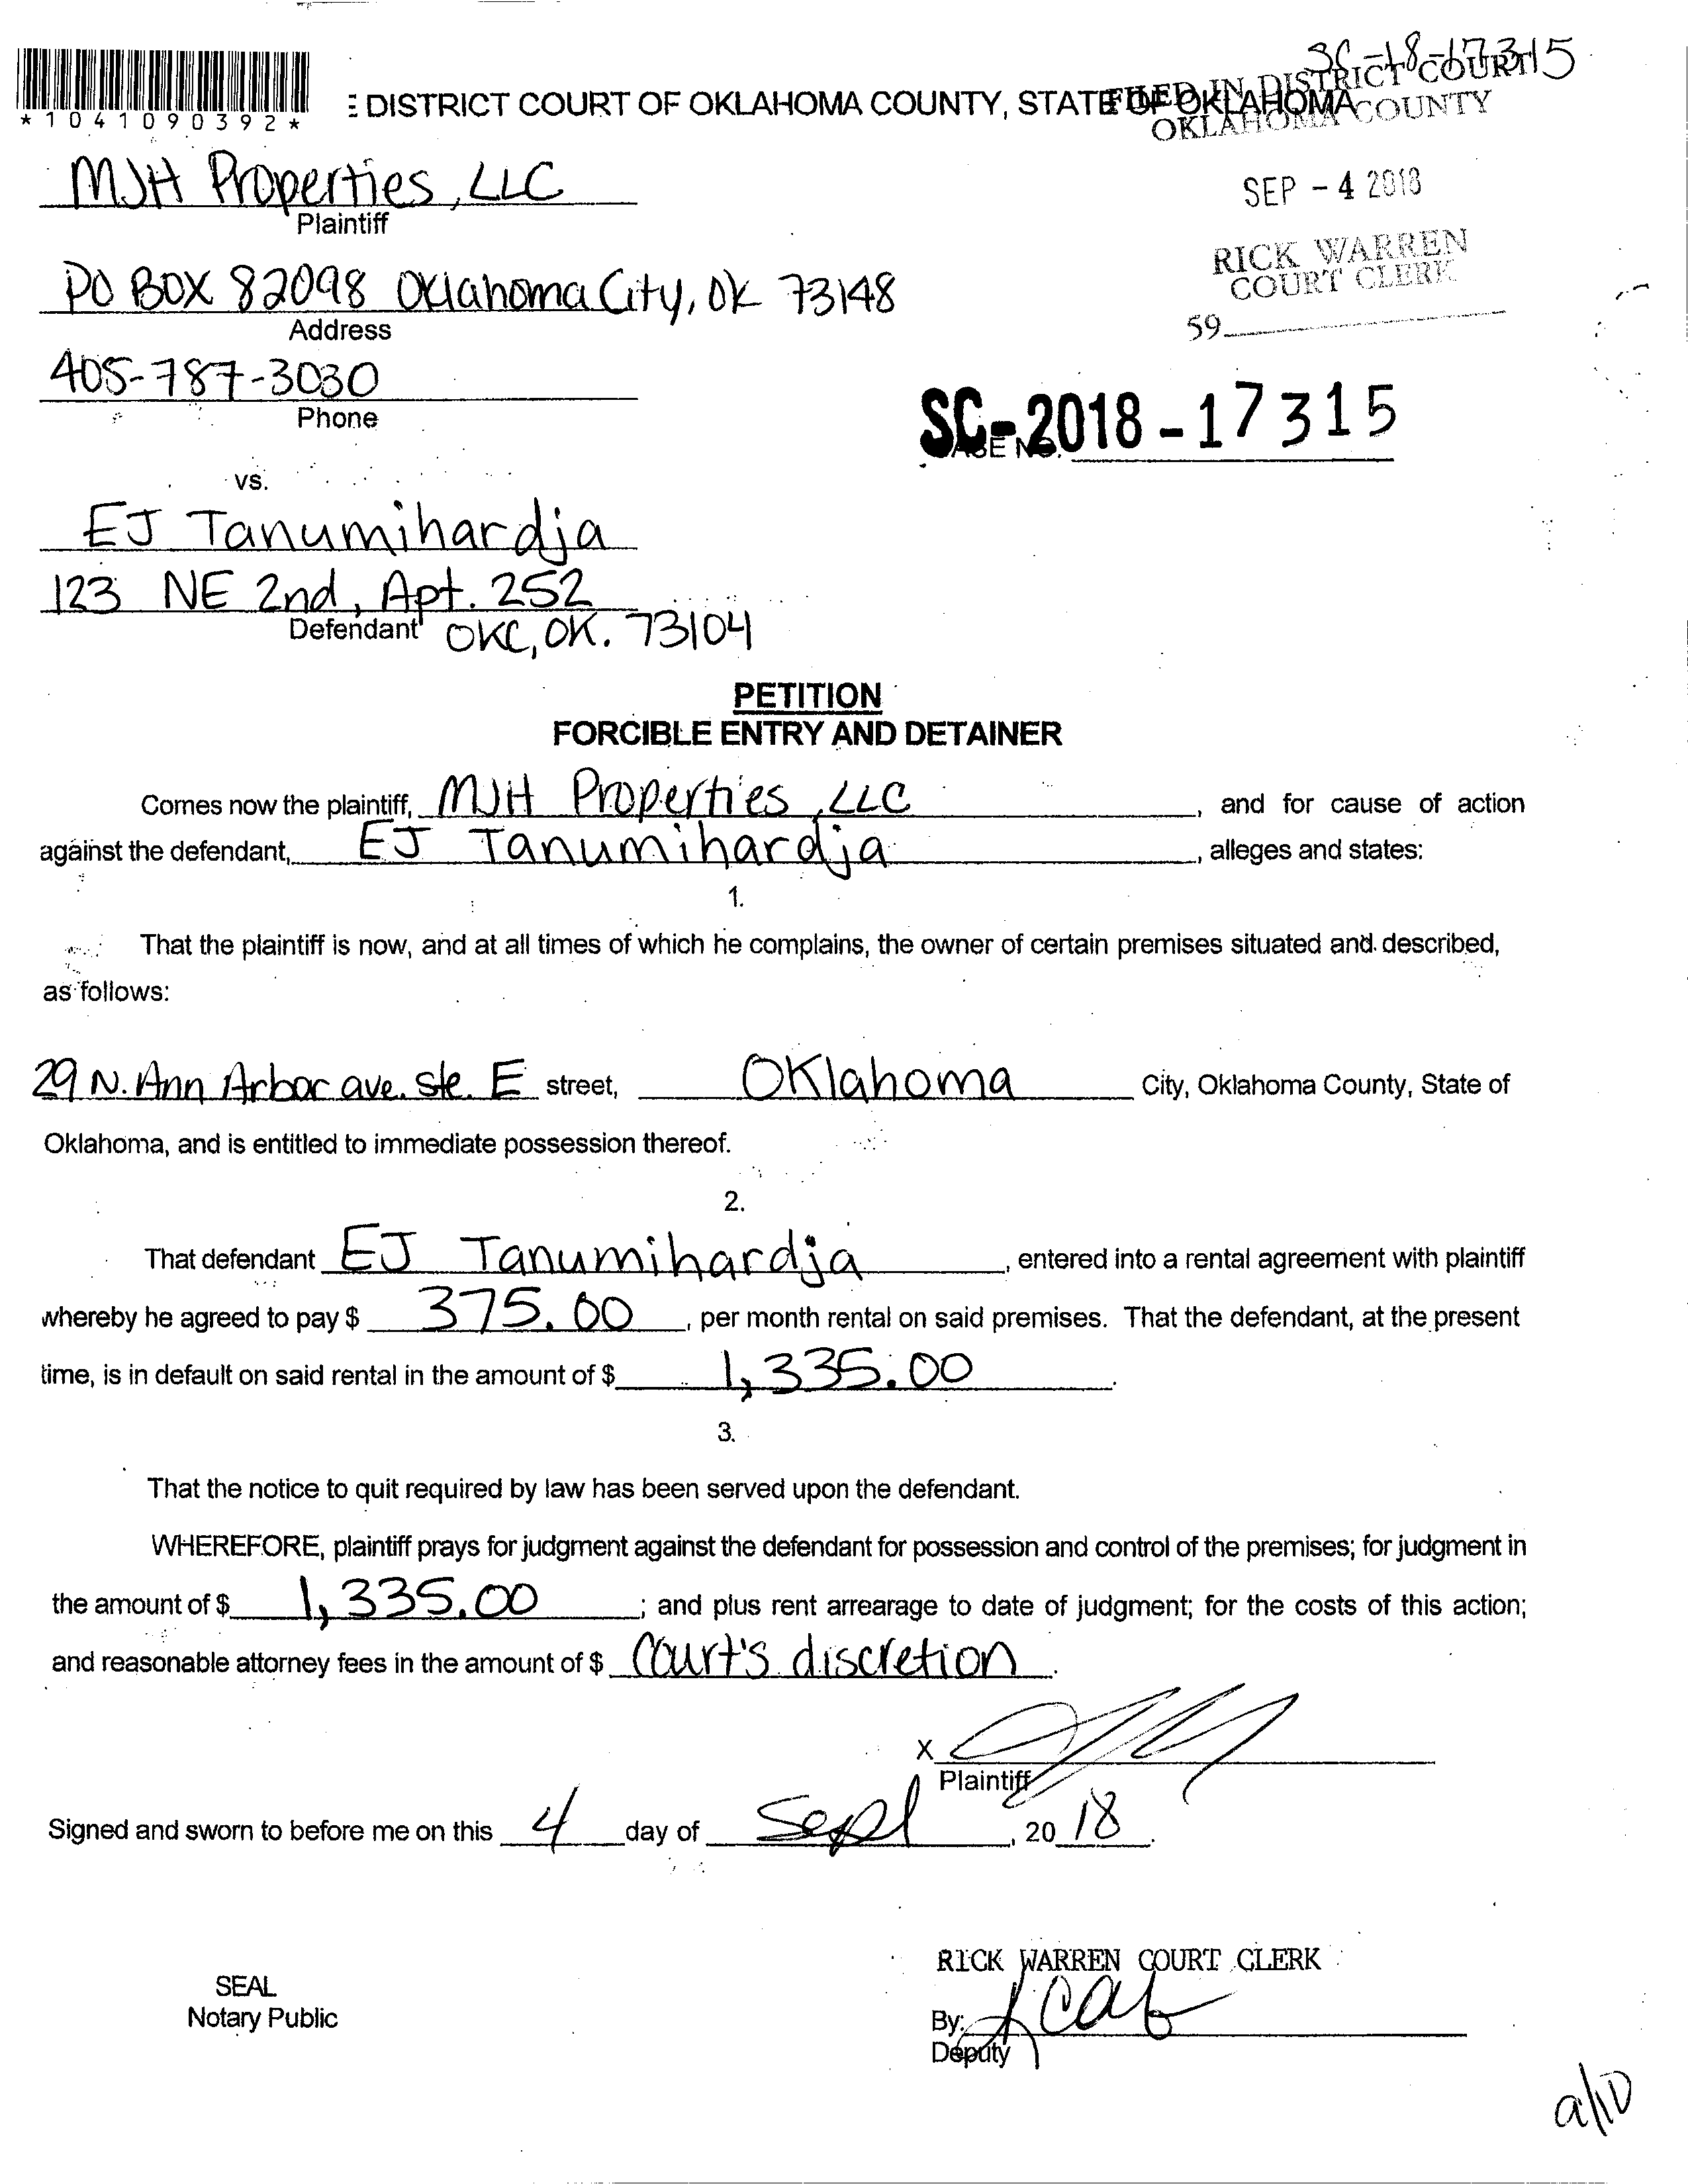 SC-18-17315
FILED IN DISTRICT COURT
: DISTRICT COURT OF OKLAHOMA COUNTY, STATE OF OKLAHOMA
OKLAHOMA COUNTY
*1041090392*
MJH Properties, LLC
Plaintiff
SEP - 4 2018
PO BOX 82098 Oklahoma City, OK 73148
Address
RICK WARREN
COURT CLERK
59
405-787-3030
Phone
SC-2018-17315
vs.
EJ Tanumihardja
123 NE 2nd, Apt. 252
Defendant OKC, OK. 73104
PETITION
FORCIBLE ENTRY AND DETAINER
Comes now the plaintiff, MJH Properties, LLC, and for cause of action
against the defendant, EJ Tanumihardja, alleges and states:
1.
That the plaintiff is now, and at all times of which he complains, the owner of certain premises situated and described,
as follows:
29 N. Ann Arbor ave. ste. E street, Oklahoma City, Oklahoma County, State of
Oklahoma, and is entitled to immediate possession thereof.
2.
That defendant EJ Tanumihardja, entered into a rental agreement with plaintiff
whereby he agreed to pay $ 375.00, per month rental on said premises. That the defendant, at the present
time, is in default on said rental in the amount of $ 1,335.00.
3.
That the notice to quit required by law has been served upon the defendant.
WHEREFORE, plaintiff prays for judgment against the defendant for possession and control of the premises; for judgment in
the amount of $ 1,335.00; and plus rent arrearage to date of judgment; for the costs of this action;
and reasonable attorney fees in the amount of $ Court's discretion.
X
Plaintiff
Signed and sworn to before me on this 4 day of Sept, 20 18.
RICK WARREN COURT CLERK
SEAL
Notary Public
By:
Deputy